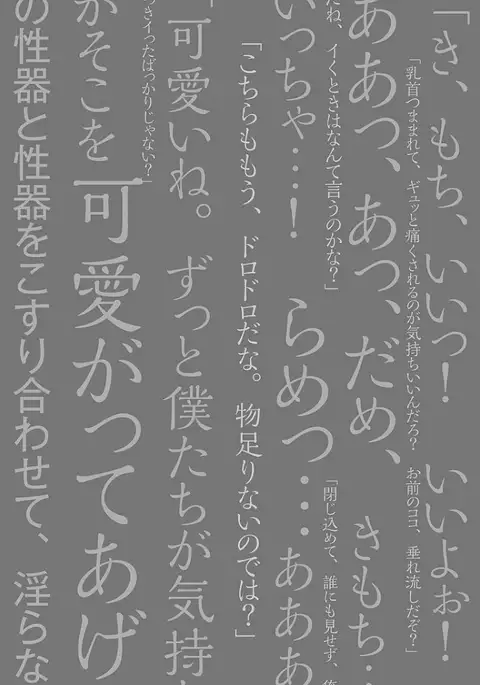 「き、もち、いいっ！　いいよぉ！
「乳首つままれて、ギュッと痛くされるのが気持ちいいんだろ？　お前のココ、垂れ流しだぞ？」
ああっ、あっ、だめ、きもち…
だね、イくときはなんて言うのかな？」
「閉じ込めて、誰にも見せず、俺
いっちゃ…！　らめっ…ああぁ
「こちらももう、ドロドロだな。物足りないのでは？」
「可愛いね。ずっと僕たちが気持
っきイったばっかりじゃない？」
がそこを可愛がってあげ
の性器と性器をこすり合わせて、淫らな